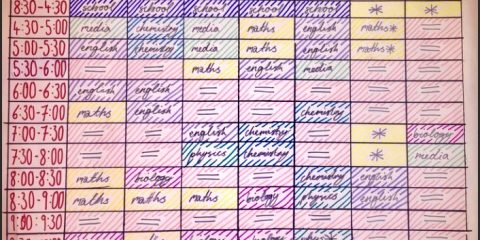 8:30-4:30 school school school school school * *
4:30-5:00 media chemistry media maths english maths* =
5:00-5:30 english chemistry media maths english maths* =
5:30-6:00 = = maths english media = =
6:00-6:30 english english = = = = =
6:30-7:00 maths english = = chemistry = =
7:00-7:30 = = english chemistry = * biology
7:30-8:00 = = physics chemistry = * media
8:00-8:30 maths biology = = chemistry english =
8:30-9:00 maths maths maths biology physics english =
9:00-9:30 = = = = = = =